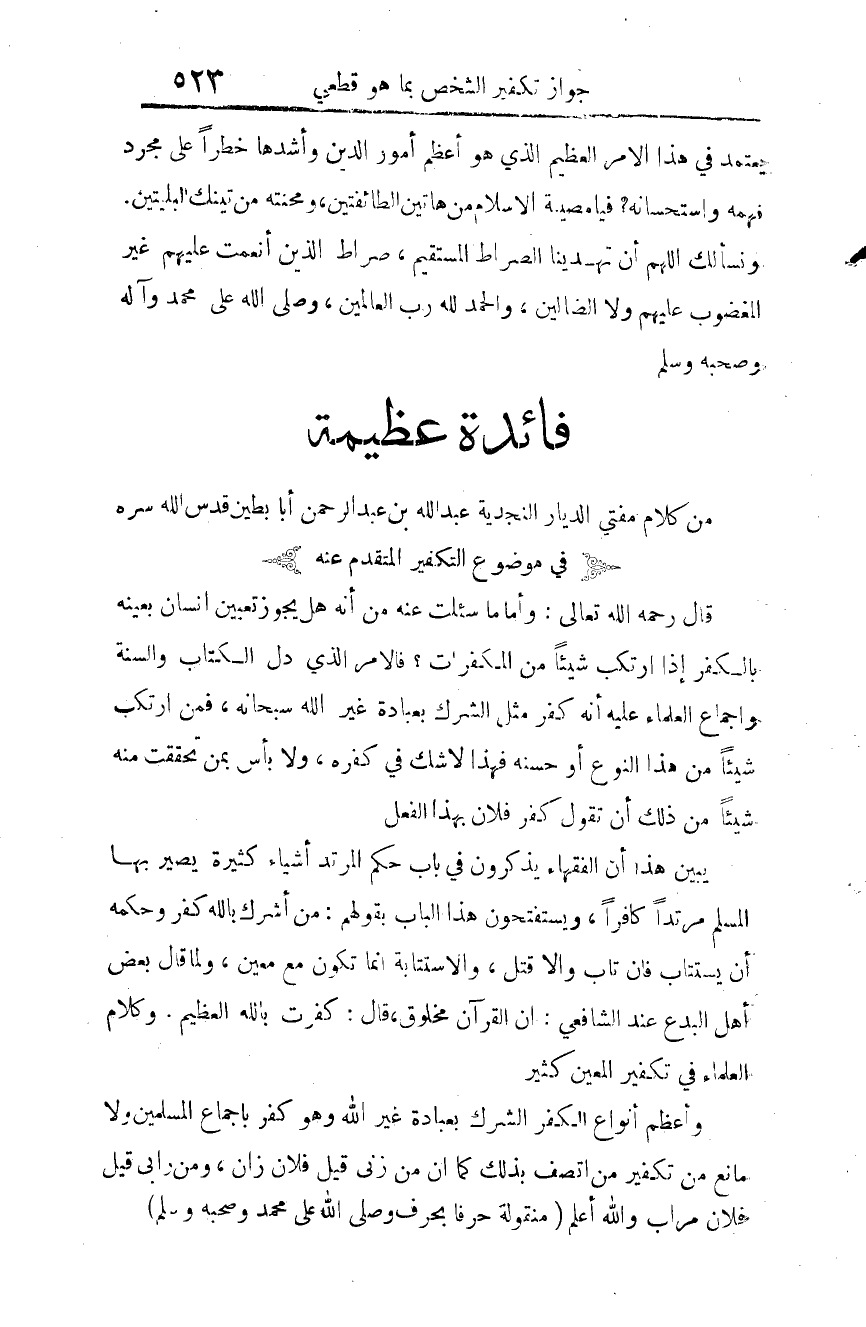 جواز تكفير الشخص بما هو قطعي ٥٢٣
يعتمد في هذا الامر العظيم الذي هو أعظم أمور الدين وأشدها خطراً على مجرد
فهمه واستحسانه؟ فيا مصيبة الاسلام من هاتين الطائفتين، ومحنته من تينك البليتين.
ونسألك اللهم أن تهدينا الصراط المستقيم، صراط الذين أنعمت عليهم غير
المغضوب عليهم ولا الضالين، والحمد لله رب العالمين، وصلى الله على محمد وآله
وصحبه وسلم
فائدة عظيمة
من كلام مفتي الديار النجدية عبدالله بن عبدالرحمن أبا بطين قدس الله سره
في موضوع التكفير المتقدم عنه
قال رحمه الله تعالى : وأما ما سئلت عنه من أنه هل يجوز تعيين انسان بعينه
بالكفر إذا ارتكب شيئاً من المكفرات ؟ فالامر الذي دل الكتاب والسنة
واجماع العلماء عليه أنه كفر مثل الشرك بعبادة غير الله سبحانه، فمن ارتكب
شيئاً من هذا النوع أو حسنه فهذا لاشك في كفره، ولا بأس بمن تحققت منه
شيئاً من ذلك أن تقول كفر فلان بهذا الفعل
يبين هذا أن الفقهاء يذكرون في باب حكم المرتد أشياء كثيرة يصير بها
المسلم مرتداً كافراً، ويستفتحون هذا الباب بقولهم : من أشرك بالله كفر وحكمه
أن يستتاب فان تاب والا قتل، والاستتابة انما تكون مع معين، ولما قال بعض
أهل البدع عند الشافعي : ان القرآن مخلوق، قال : كفرت بالله العظيم . وكلام
العلماء في تكفير المعين كثير
وأعظم أنواع الكفر الشرك بعبادة غير الله وهو كفر باجماع المسلمين ولا
مانع من تكفير من اتصف بذلك كما ان من زنى قيل فلان زان، ومن رابى قيل
فلان مراب والله أعلم ( منقولة حرفا بحرف وصلى الله على محمد وصحبه وسلم)